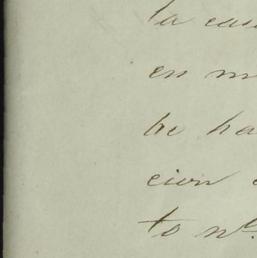 la cau
en m
be ha
cion
to nº.